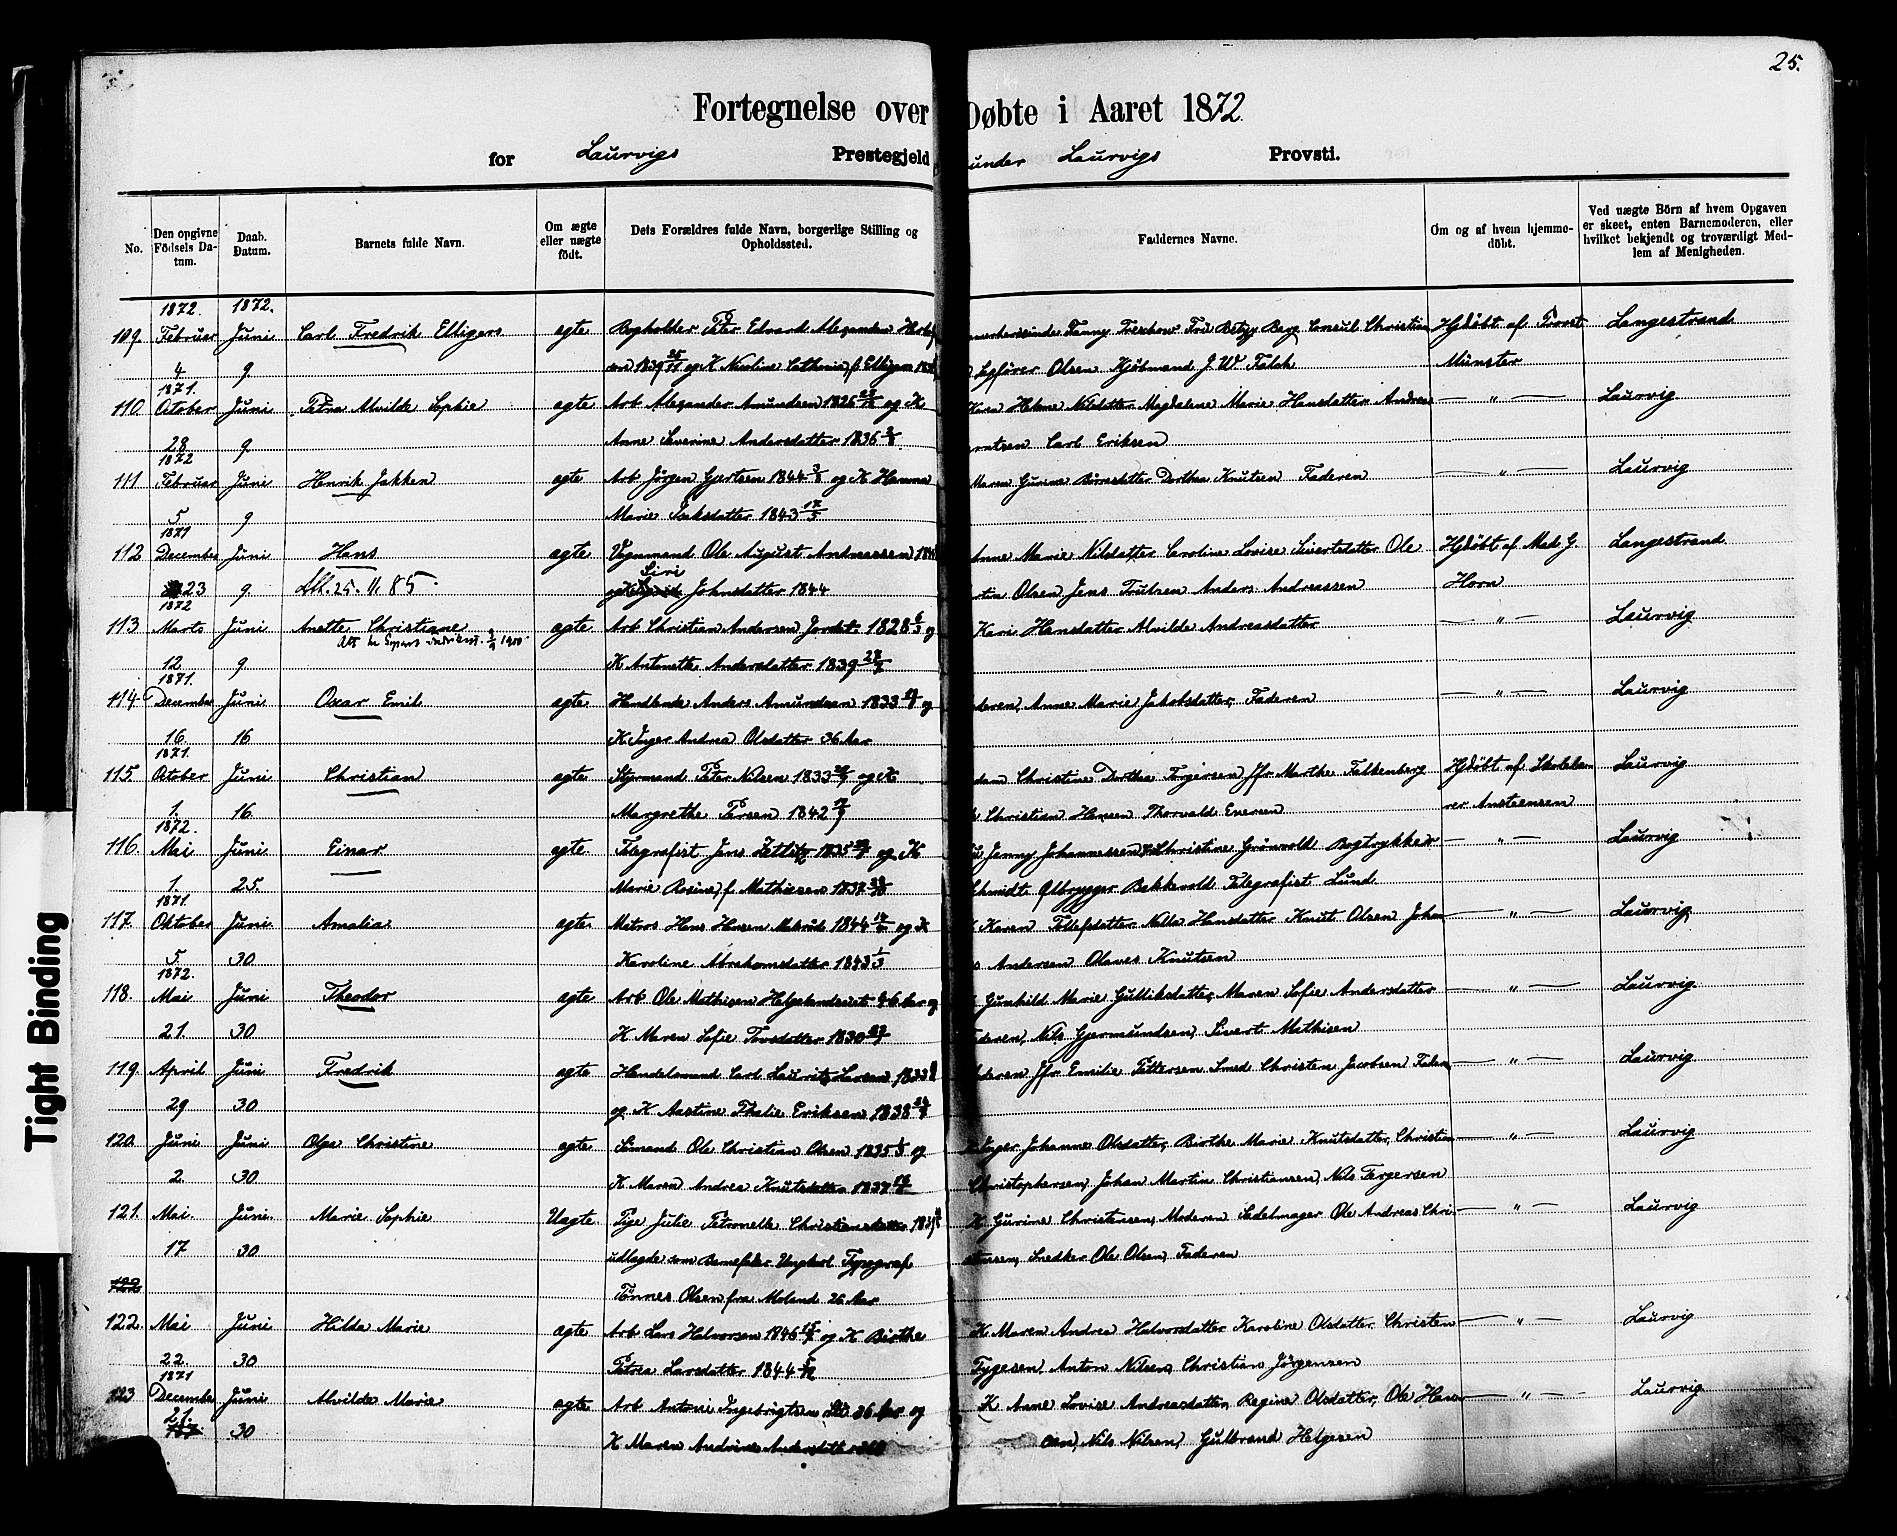 25.
Fortegnelse over Døbte i Aaret 1872.
for Laurvigs Prestegjeld under Laurvigs Provsti.
No. Den opgivne Födsels Datum. Daab. Datum. Barnets fulde Navn. Om ægte eller uægte födt. Dets Forældres fulde Navn, borgerlige Stilling og Opholdssted. Faddernes Navne. Om og af hvem hjemmedöbt. Ved uægte Börn af hvem Opgaven er skeet, enten Barnemoderen, eller hvilket bekjendt og troværdigt Medlem af Menigheden.
1872. 1872.
109 Februer Juni Carl Fredrik Elligers ægte Bogholder Peter Edvard Alexander Fanny Treschow Frk Betzy Berg Consul Christian Hjdöbt af Provst Langestrand
4 9. 1839 25/11 og K Nicoline Cathrine f. Elligers Olsen Kjöbmand J. W. Falch Münster
1871.
110 October Juni Petra Alvilde Sophie ægte Arb Alexander Amundsen 1826 og K Helene Nilsdatter Magdalene Marie Hansdatter Andreas — " — Laurvig
28 9. Anne Severine Andersdatter 1836 Carl Eriksen
1872
111 Februer Juni Henrik Jakken ægte Arb Jörgen Gjertsen 1844 3/8 og K Hanna Maren Gurine Dorthea Knutsen Faderen — " — Laurvig
5 9 Marie Isaksdatter 1843 17/5
1871
112 December Juni Hans ægte Vognmand Ole August Andreassen Anne Marie Nilsdatter Caroline Lovise Sivertsdatter Ole Hjdöbt af Mad G. Langestrand
23 9. Att. 25.11.85. Siri Johnsdatter 1844 Olsen Jens Trulsen Anders Andreassen Horn
1872
113 Marts Juni Anette Christiane ægte Arb Christian Andersen 1828 og Kari Hansdatter Alvilde Andreasdatter — " — Laurvig
12 9 K Antonette Andersdatter 1839
1871.
114 December Juni Oscar Emil ægte Handlende Anders Amundsen 1833 og Anne Marie Jakobsdatter, Faderen — " — Laurvig
16. 16 K Inger Andrea Olsdatter 36 Aar
1871.
115. October Juni Christian ægte Styrmand Peter Nilsen 1833 og K Christine Dorthea Torgersen Jfr Marthe Falkenberg Hjdöbt af Skolelæ- Laurvig
1. 16. Margrethe 1842 Christian Hansen Thorvald Eversen rer Ansteensen
1872.
116. Mai Juni Einar ægte Telegrafist Jens Zetlitz 1835 og K Jenny Johannessen Christine Grönvold Bogtrykker — " — Laurvig
1. 25. Marie Rosine f. Mathiesen 1832 Schmidt Ølbrygger Bakkevold Telegrafist Lund
1871.
117. Oktober Juni Amalia ægte Matros Hans Hansen 1844 og K Karen Tollefsdatter Hansdatter Knut Olsen Johan — " — Laurvig
5. 30 Karoline Abrahamsdatter 1843 1/3 Andersen Olaves Knutsen
1872.
118. Mai Juni Theodor ægte Arb Ole Mathisen 46 Aar og Gunhild Marie Gulliksdatter, Maren Sofie Andersdatter — " — Laurvig
21. 30 K Maren Sofie Torsdatter 1830 Faderen, Nils Gjermundsen, Sivert Mathisen
119. April Juni Fredrik ægte Handelsmand Carl Lauritz Larsen 1833 Jfr Emilie Pettersen Smed Christen Jacobsen — " — Laurvig
29 30 og K Thalie Eriksen 1838 24/8
120. Juni Juni Olga Christine ægte Sömand Ole Christian Olsen 1835 og Inger Johanne Olsdatter, Birthe Marie Knutsdatter, Christian — " — Laurvig
2. 30 K Maren Andrea Knutsdatter 1837 Christophersen, Johan Martin Christiansen, Nils Torgersen
121. Mai. Juni. Marie Sophie Uægte Pige Julie Petronelle K Gurine Christensen, Moderen Sadelmager Ole Andreas Chri- — " — Laurvig
17 30 udlagde som Barnefader Ungkarl Typograf stensen, Snedker Ole Olsen, Faderen
122 Tönnes Olsen fra Moland 26 Aar
122. Mai Juni Hilda Marie ægte Arb Lars Halvorsen 1846 og K Birthe K Maren Andrea Halvorsdatter Karoline Olsdatter Christen — " — Laurvig
22. 30 Petrea Larsdatter 1844 Tygesen, Anton Nilsen, Christian Jörgensen
1871
123 December Juni Alvilde Marie ægte Arb Anton Ingebrigtsen 36 Aar og K Anne Lovise Andreasdatter, Regine Olsdatter, Ole Hans- — " — Laurvig
21. 30 K Maren Andrine Andersdatter sen, Nils Nilsen, Gulbrand Helgesen
Tight Binding